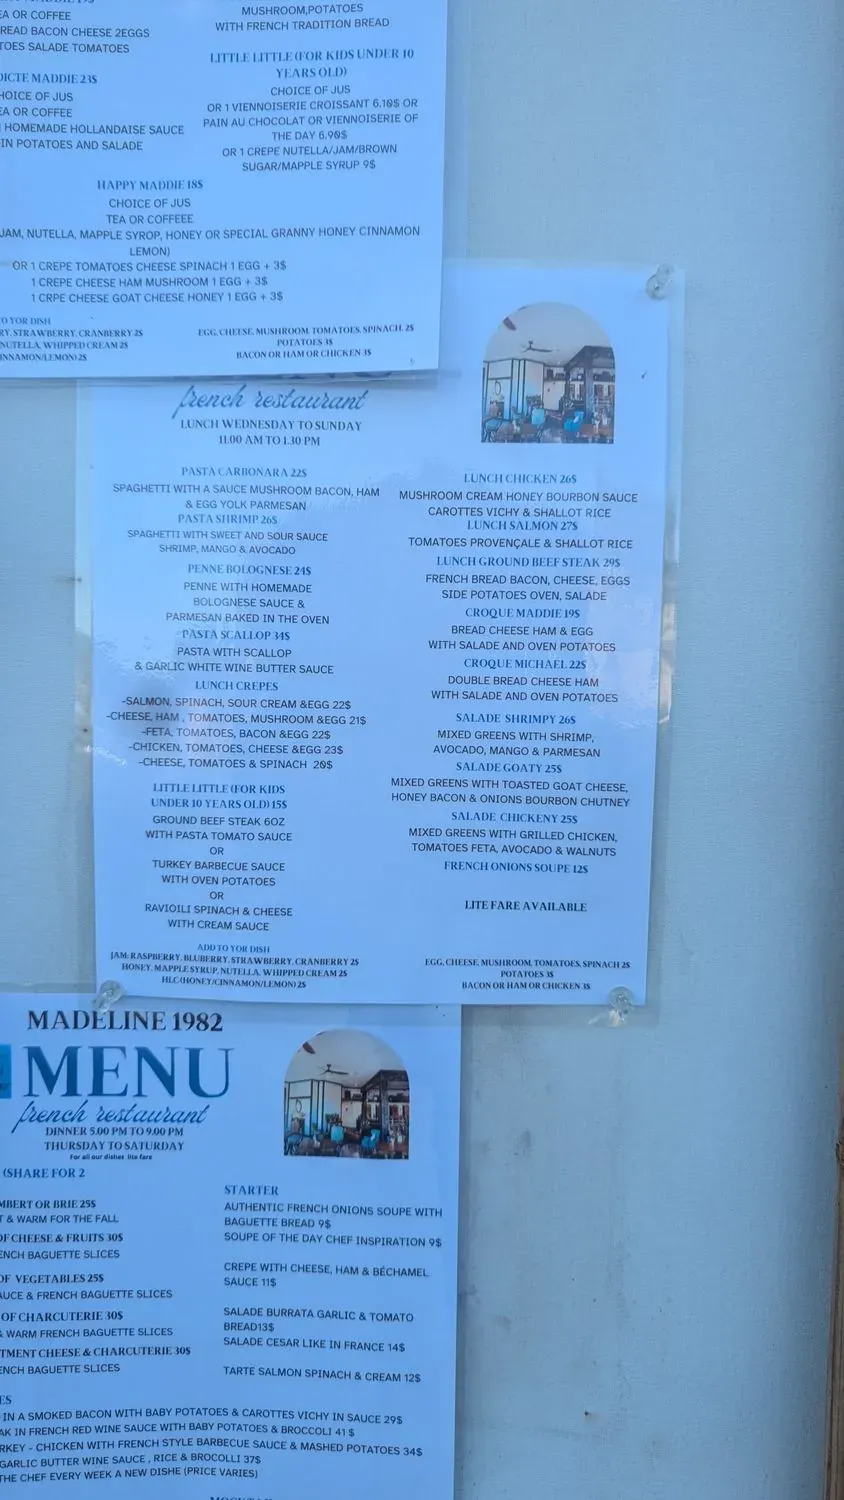 EA OR COFFEE
READ BACON CHEESE 2EGGS
TOES SALADE TOMATOES
DICTE MADDIE 23$
HOICE OF JUS
EA OR COFFEE
HOMEMADE HOLLANDAISE SAUCE
IN POTATOES AND SALADE
MUSHROOM,POTATOES
WITH FRENCH TRADITION BREAD
LITTLE LITTLE (FOR KIDS UNDER 10
YEARS OLD)
CHOICE OF JUS
OR 1 VIENNOISERIE CROISSANT 6.10$ OR
PAIN AU CHOCOLAT OR VIENNOISERIE OF
THE DAY 6.90$
OR 1 CREPE NUTELLA/JAM/BROWN
SUGAR/MAPPLE SYRUP 9$
HAPPY MADDIE 18$
CHOICE OF JUS
TEA OR COFFEEE
JAM, NUTELLA, MAPPLE SYROP, HONEY OR SPECIAL GRANNY HONEY CINNAMON
LEMON)
OR 1 CREPE TOMATOES CHEESE SPINACH 1 EGG + 3$
1 CREPE CHEESE HAM MUSHROOM 1 EGG + 3$
1 CRPE CHEESE GOAT CHEESE HONEY 1 EGG + 3$
O YOR DISH
RY, STRAWBERRY, CRANBERRY 2$
NUTELLA, WHIPPED CREAM 2$
INNAMON/LEMON) 2$
EGG, CHEESE, MUSHROOM, TOMATOES, SPINACH, 2$
POTATOES 3$
BACON OR HAM OR CHICKEN 3$
french restaurant
LUNCH WEDNESDAY TO SUNDAY
11.00 AM TO 1.30 PM
PASTA CARBONARA 22$
SPAGHETTI WITH A SAUCE MUSHROOM BACON, HAM
& EGG YOLK PARMESAN
PASTA SHRIMP 26$
SPAGHETTI WITH SWEET AND SOUR SAUCE
SHRIMP, MANGO & AVOCADO
PENNE BOLOGNESE 24$
PENNE WITH HOMEMADE
BOLOGNESE SAUCE &
PARMESAN BAKED IN THE OVEN
PASTA SCALLOP 34$
PASTA WITH SCALLOP
& GARLIC WHITE WINE BUTTER SAUCE
LUNCH CREPES
-SALMON, SPINACH, SOUR CREAM &EGG 22$
-CHEESE, HAM , TOMATOES, MUSHROOM &EGG 21$
-FETA, TOMATOES, BACON &EGG 22$
-CHICKEN, TOMATOES, CHEESE &EGG 23$
-CHEESE, TOMATOES & SPINACH 20$
LITTLE LITTLE (FOR KIDS
UNDER 10 YEARS OLD) 15$
GROUND BEEF STEAK 6OZ
WITH PASTA TOMATO SAUCE
OR
TURKEY BARBECUE SAUCE
WITH OVEN POTATOES
OR
RAVIOILI SPINACH & CHEESE
WITH CREAM SAUCE
ADD TO YOR DISH
JAM: RASPBERRY, BLUBERRY, STRAWBERRY, CRANBERRY 2$
HONEY, MAPPLE SYRUP, NUTELLA, WHIPPED CREAM 2$
HLC (HONEY/CINNAMON/LEMON) 2$
LUNCH CHICKEN 26$
MUSHROOM CREAM HONEY BOURBON SAUCE
CAROTTES VICHY & SHALLOT RICE
LUNCH SALMON 27$
TOMATOES PROVENÇALE & SHALLOT RICE
LUNCH GROUND BEEF STEAK 29$
FRENCH BREAD BACON, CHEESE, EGGS
SIDE POTATOES OVEN, SALADE
CROQUE MADDIE 19$
BREAD CHEESE HAM & EGG
WITH SALADE AND OVEN POTATOES
CROQUE MICHAEL 22$
DOUBLE BREAD CHEESE HAM
WITH SALADE AND OVEN POTATOES
SALADE SHRIMPY 26$
MIXED GREENS WITH SHRIMP,
AVOCADO, MANGO & PARMESAN
SALADE GOATY 25$
MIXED GREENS WITH TOASTED GOAT CHEESE,
HONEY BACON & ONIONS BOURBON CHUTNEY
SALADE CHICKENY 25$
MIXED GREENS WITH GRILLED CHICKEN,
TOMATOES FETA, AVOCADO & WALNUTS
FRENCH ONIONS SOUPE 12$
LITE FARE AVAILABLE
EGG, CHEESE, MUSHROOM, TOMATOES, SPINACH 2$
POTATOES 3$
BACON OR HAM OR CHICKEN 3$
MADELINE 1982
MENU
french restaurant
DINNER 5.00 PM TO 9.00 PM
THURSDAY TO SATURDAY
For all our dishes lite fare
(SHARE FOR 2
MBERT OR BRIE 25$
T & WARM FOR THE FALL
OF CHEESE & FRUITS 30$
ENCH BAGUETTE SLICES
OF VEGETABLES 25$
AUCE & FRENCH BAGUETTE SLICES
OF CHARCUTERIE 30$
& WARM FRENCH BAGUETTE SLICES
TMENT CHEESE & CHARCUTERIE 30$
ENCH BAGUETTE SLICES
STARTER
AUTHENTIC FRENCH ONIONS SOUPE WITH
BAGUETTE BREAD 9$
SOUPE OF THE DAY CHEF INSPIRATION 9$
CREPE WITH CHEESE, HAM & BÉCHAMEL
SAUCE 11$
SALADE BURRATA GARLIC & TOMATO
BREAD13$
SALADE CESAR LIKE IN FRANCE 14$
TARTE SALMON SPINACH & CREAM 12$
ES
IN A SMOKED BACON WITH BABY POTATOES & CAROTTES VICHY IN SAUCE 29$
AK IN FRENCH RED WINE SAUCE WITH BABY POTATOES & BROCCOLI 41 $
RKEY - CHICKEN WITH FRENCH STYLE BARBECUE SAUCE & MASHED POTATOES 34$
GARLIC BUTTER WINE SAUCE , RICE & BROCOLLI 37$
THE CHEF EVERY WEEK A NEW DISHE (PRICE VARIES)